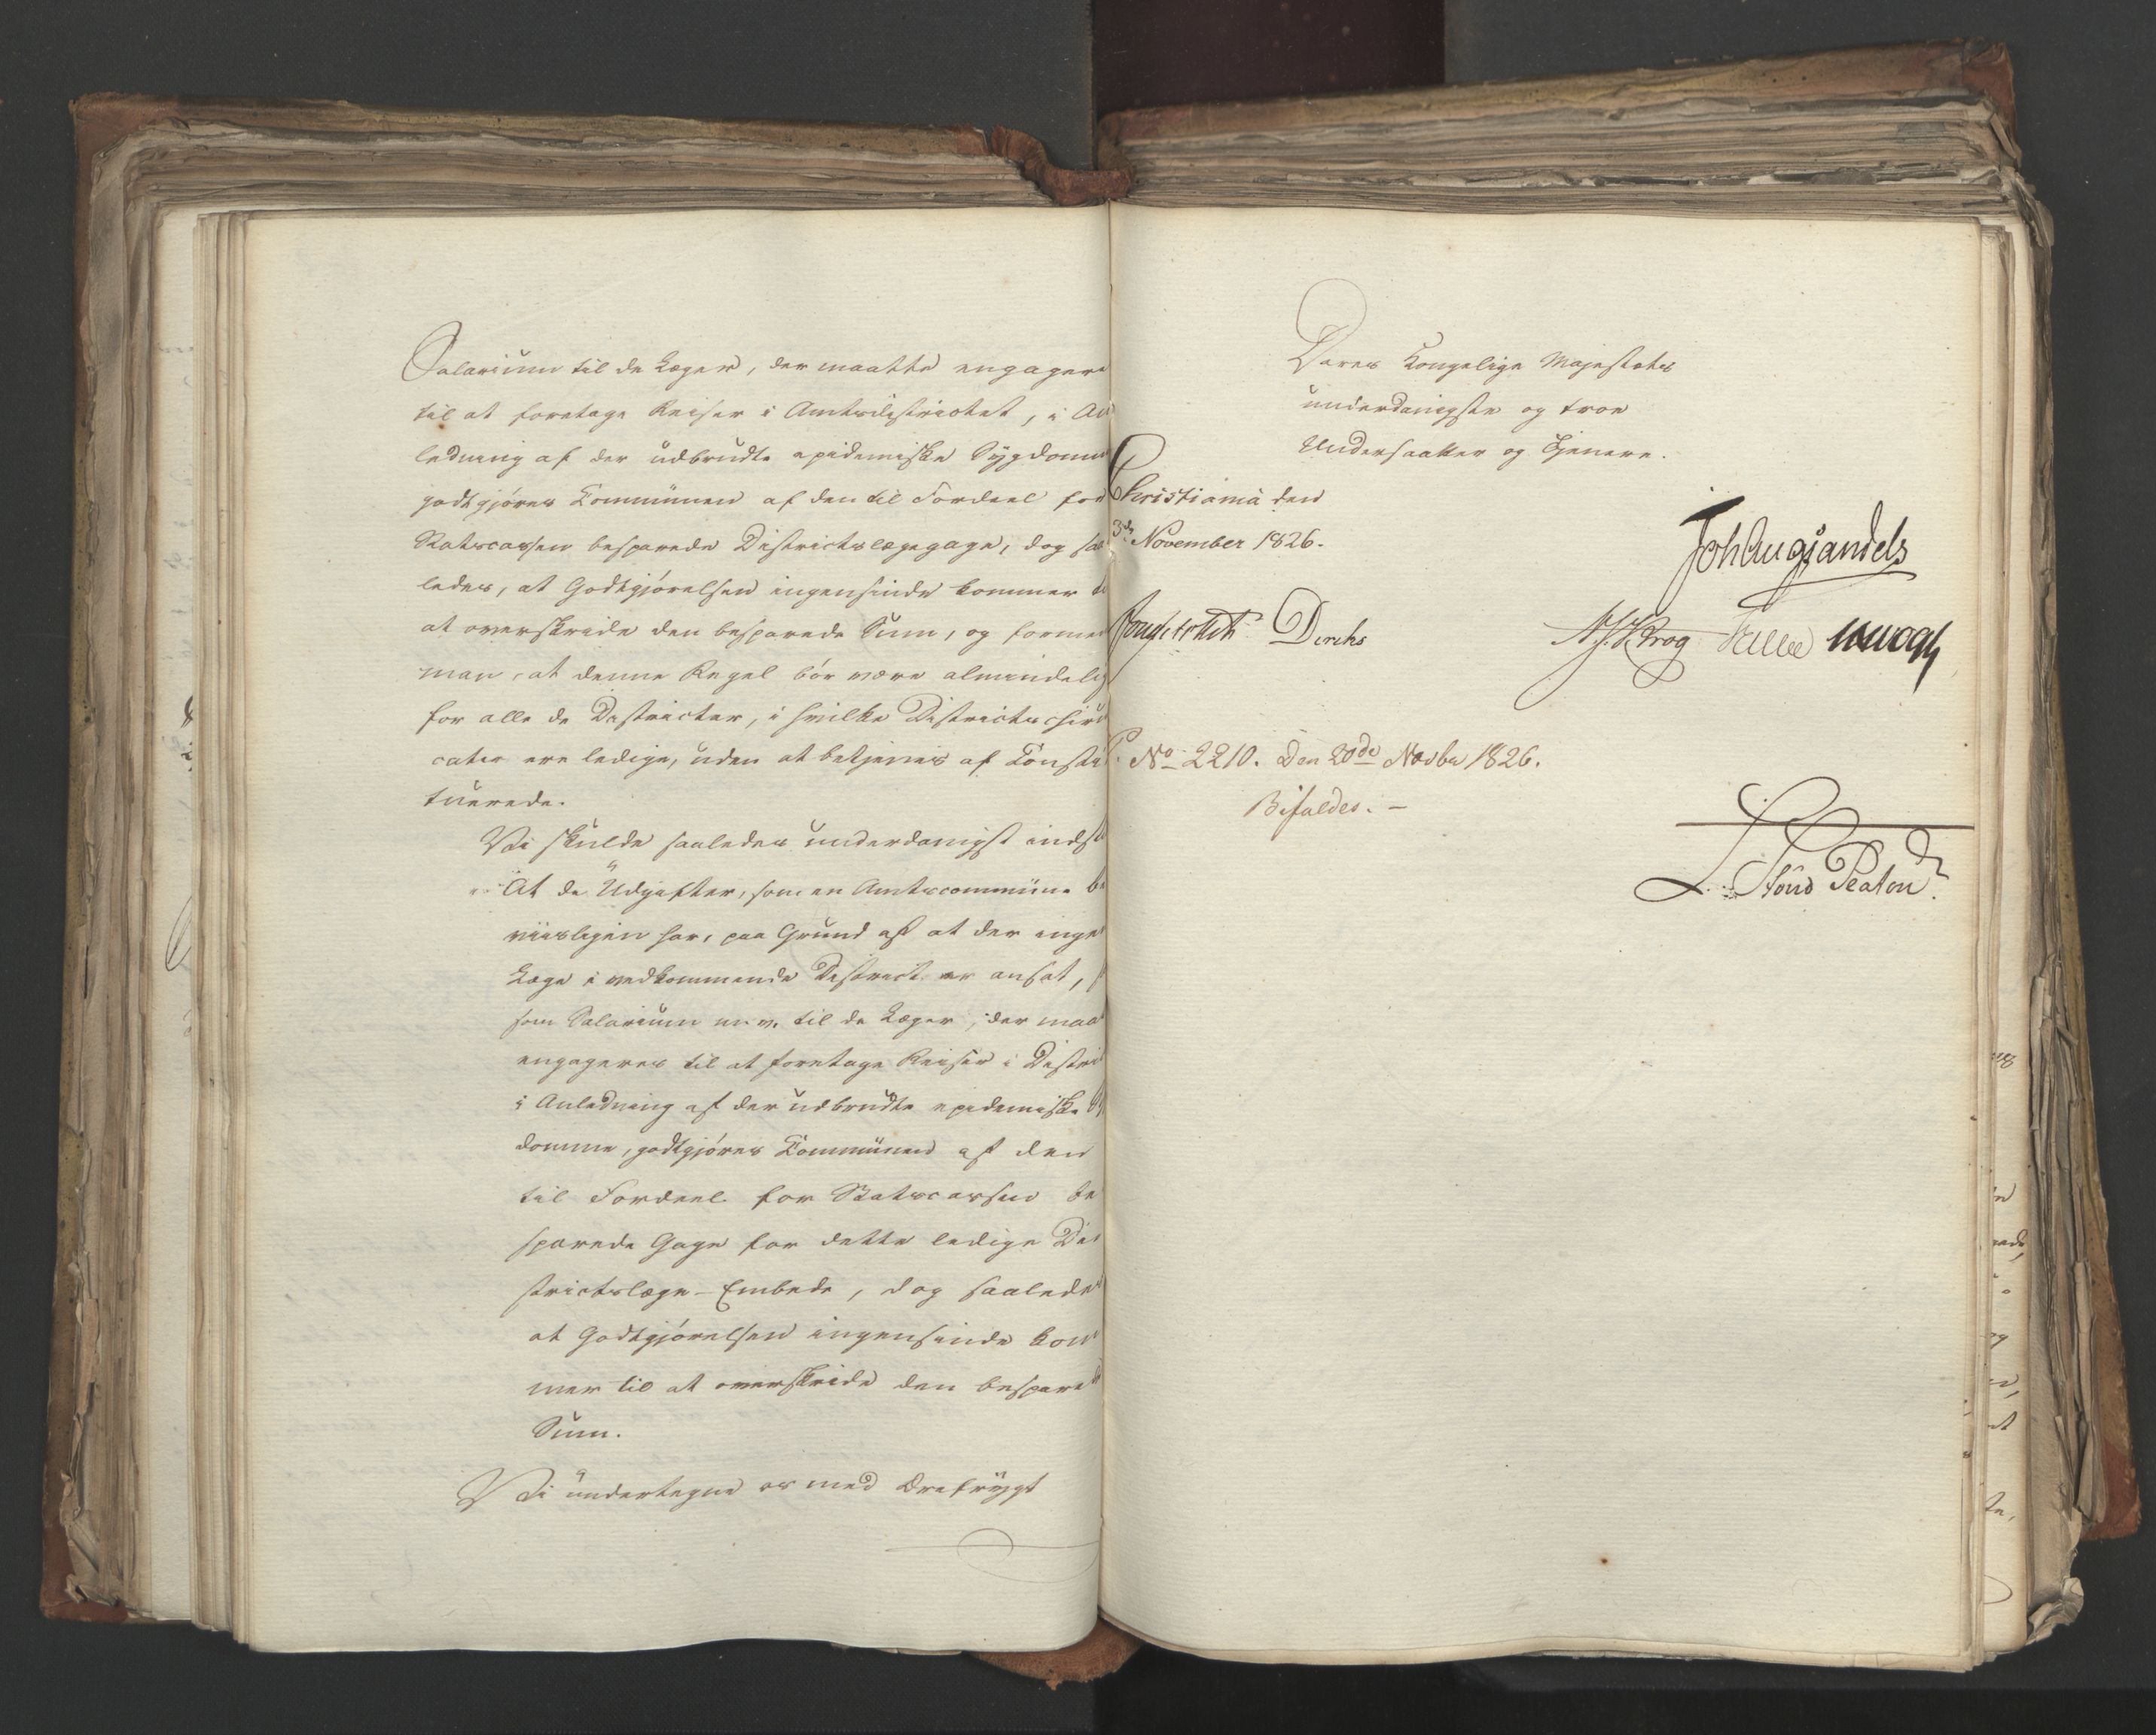 Salarium til de Læger, der maatte engagere
til at foretage Reiser i Amtsdistrictet, i An
ledning af der udbrudte epidemiske Sygdomm
godtgjøres Communen af den til Fordeel for
Statscassen besparede Districtslægegage, dog saa
ledes, at Godtgjørelsen ingensinde kommer ti
at overskride den besparede Sum, og formee
man, at denne Regel bör være almindelig
for alle de Districter, i hvilke Districtschirur
cater ere ledige, uden at betjenes af Consti
tuerede.
Vi skulde saaledes underdanigst indst
At de Udgifter, som en Amtscommune be
viisligen har, paa Grund af at der inge
Læge i vedkommende District er ansat,
som Salarium m. v. til de Læger, der maa
engageres til at foretage Reiser i Distri
i Anledning af der udbrudte epidemiske Sy
domme, godtgjøres Communen af den
til Fordeel for Statscassen be
sparede Gage for dette ledige Di
strictslæge-Embede, dog saalede
at Godtgjørelsen ingensinde kom
mer til at overskride den bespare
Sum.
Vi undertegne os med Ærefrygt
Deres Kongelige Majestæts
underdanigste og troe
Undersaatter og Tjenere.
Christiania den
3de November 1826.
Joh Aug Sandels
Diriks
Krog
No 2210. Den 20de Novbr 1826.
Bifaldes. —